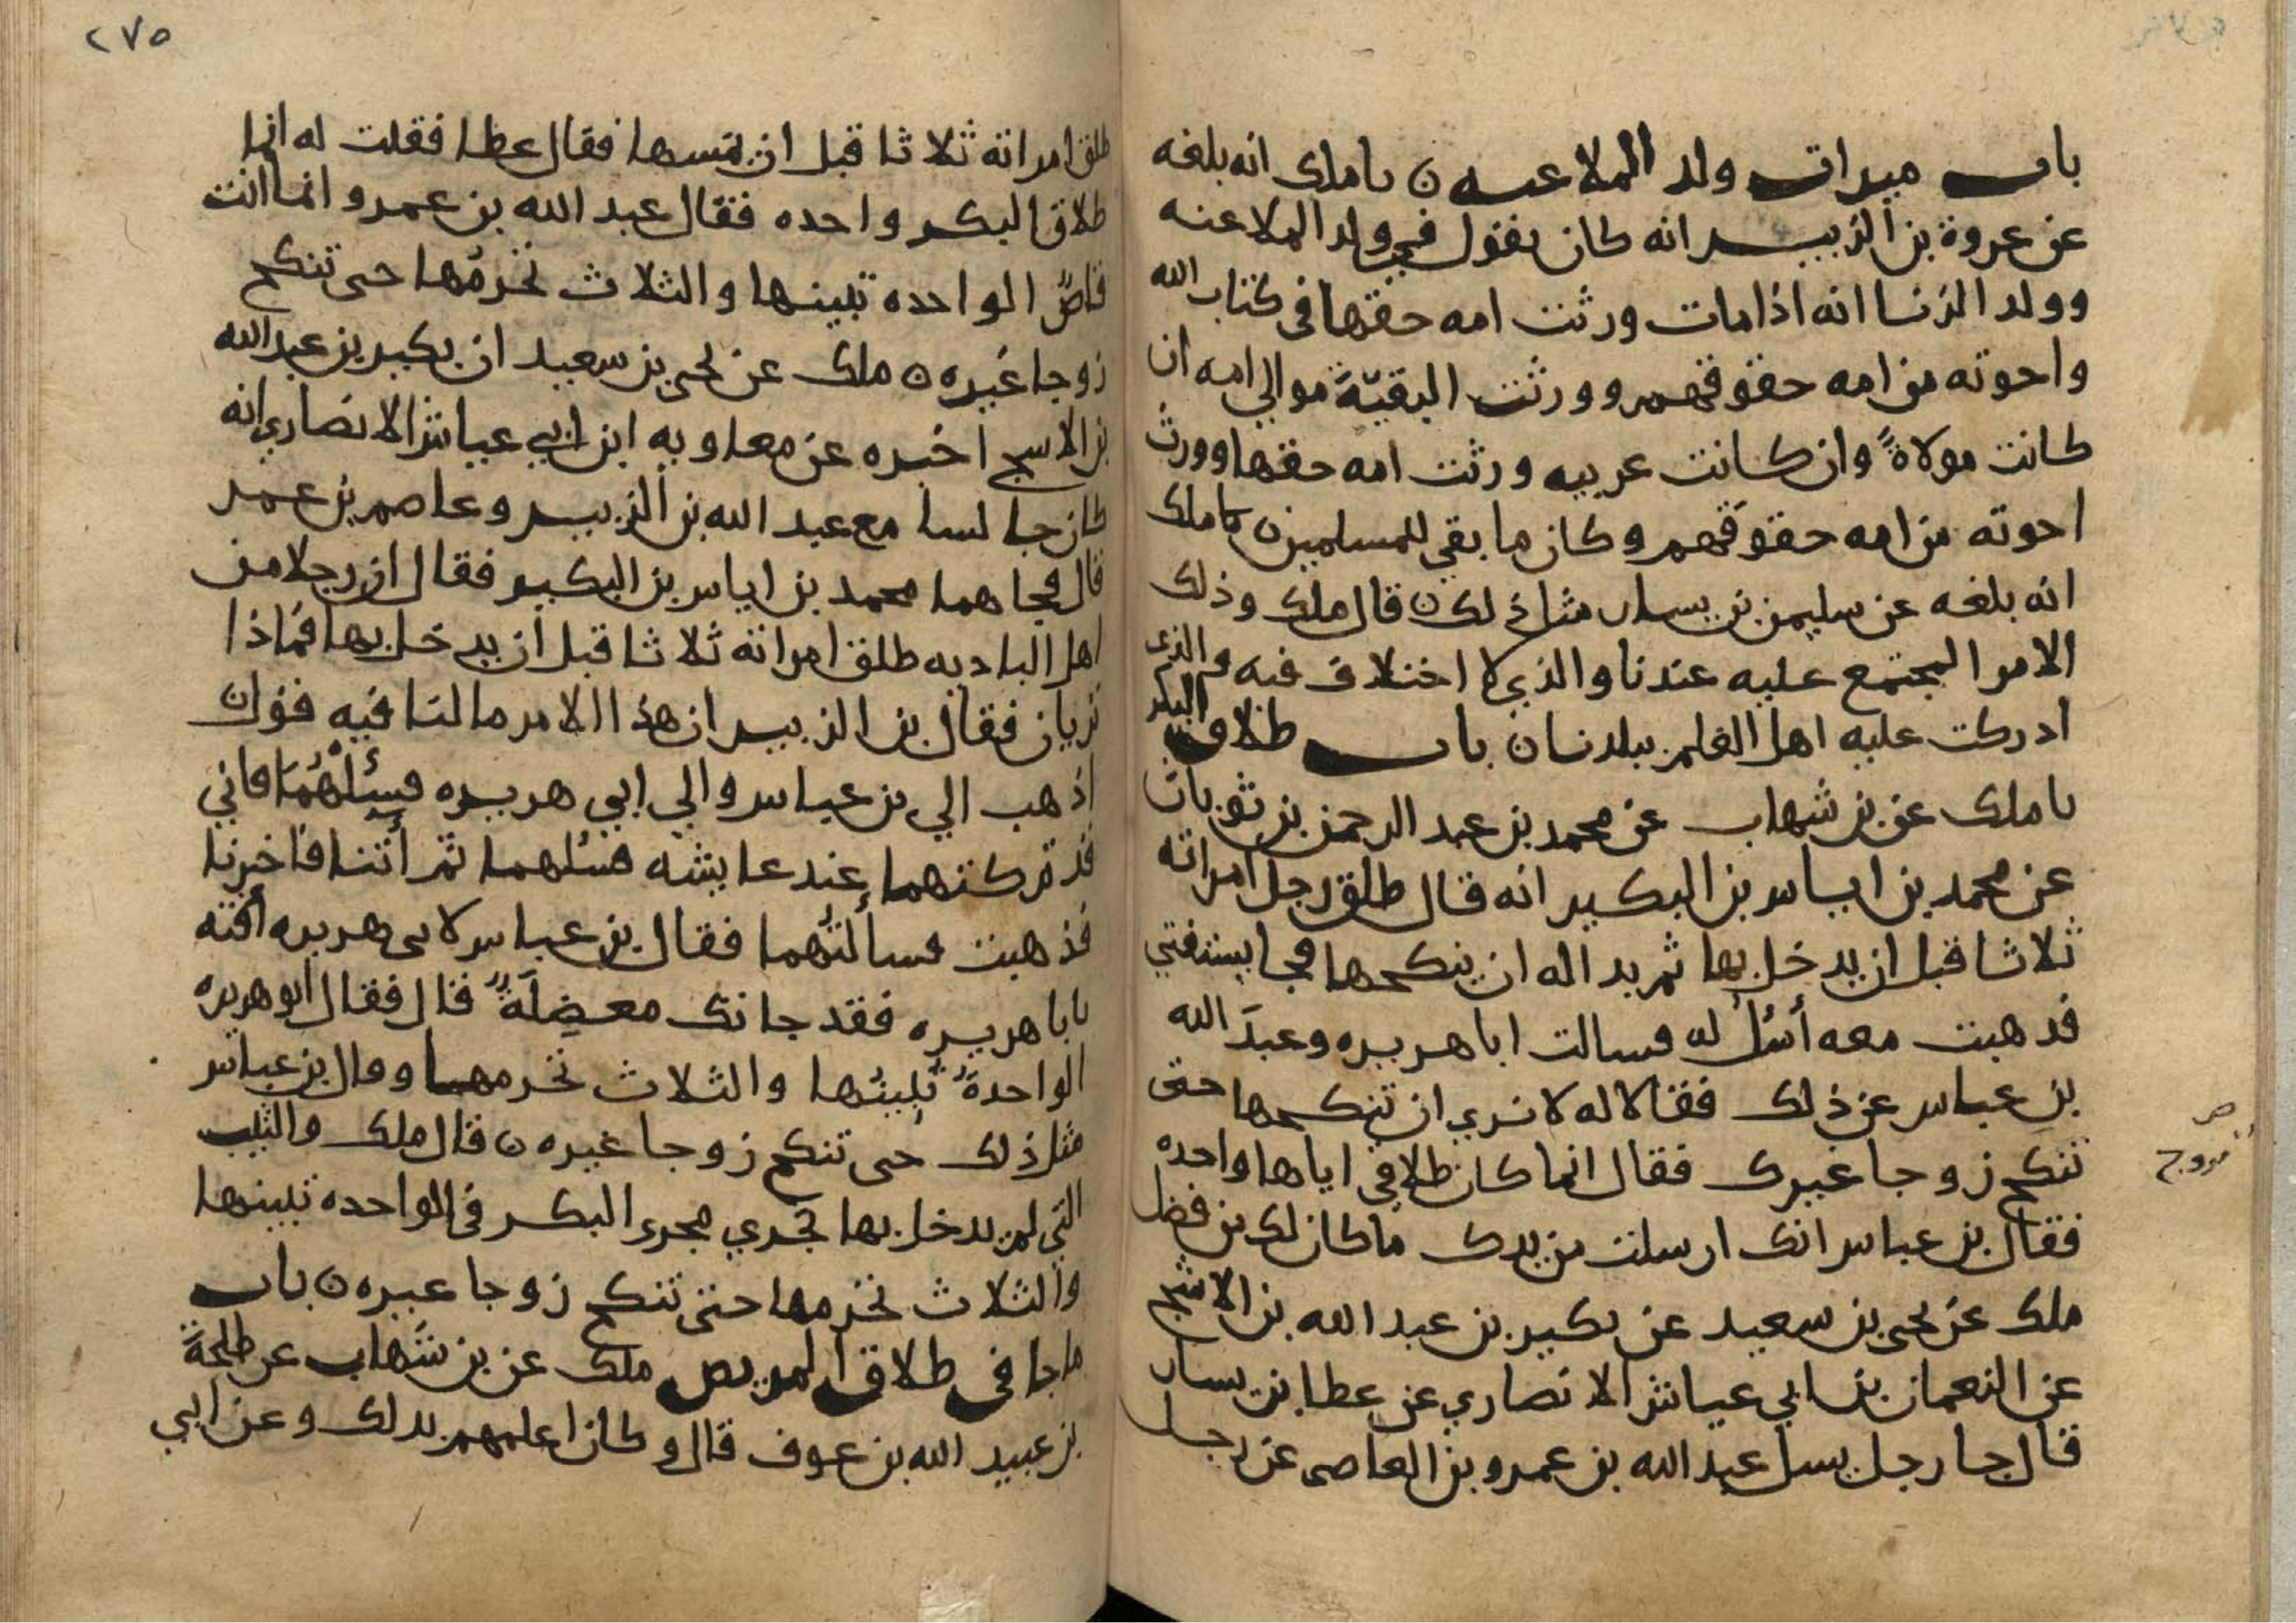 باب ميراث ولد الملاعنه ن ما ملك انه بلغه
عن عروة بن الزبير انه كان يقول في ولد الملاعنه
وولد الزنا انه اذا مات ورثت امه حقها في كتاب الله
واخوته من امه حقوقهم وورثت البقيّة موالي امه ان
كانت مولاةً وان كانت عربيه ورثت امه حقها وورث
اخوته من امه حقوقهم وكان ما بقي للمسلمين ن ما ملك
انه بلغه عن سليمن بن يسار مثل ذلك ن قال ملك وذلك
الامر المجتمع عليه عندنا والذي لا اختلاف فيه والذي
ادركت عليه اهل العلم ببلدنا ن باب طلاق البكر
ما ملك عن بن شهاب عن محمد بن عبد الرحمن بن ثوبان
عن محمد بن اياس بن البكير انه قال طلق رجل امراته
ثلاثا قبل ان يدخل بها ثم بدا له ان ينكحها فجا يستفتي
فذهبت معه أسئل له فسالت ابا هريره وعبدَ الله
بن عباس عن ذلك فقالا له لا نري ان تنكحها حتى
تنكح زوجا غيرك فقال انما كان طلاقي اياها واحده
فقال بن عباس انك ارسلت من يدك ما كان لك من فضل
ملك عن يحيى بن سعيد عن بكير بن عبد الله بن الاشج
عن النعمان بن ابي عياش الانصاري عن عطا بن يسار
قال جا رجل يسل عبد الله بن عمرو بن العاصي عن رجل
تزوج
٢٧٥
طلق امراته ثلاثا قبل ان يمسها فقال عطا فقلت له انما
طلاق البكر واحده فقال عبد الله بن عمرو انما انت
قاصٌّ الواحده تبينها والثلاث تحرمُها حتى تنكح
زوجا غيره ن ملك عن يحيى بن سعيد ان بكير بن عبد الله
بن الاشج اخبره عن معاويه ابن ابي عياش الانصاري انه
كان جالسا مع عبد الله بن الزبير وعاصم بن عمر
قال فجاهما محمد بن اياس بن البكير فقال ان رجلا من
اهل الباديه طلق امراته ثلاثا قبل ان يدخل بها فماذا
تريان فقال بن الزبير ان هذا الامر ما لنا فيه قول ن
اذهب الي بن عباس والي ابي هريره فسئلهُما فاني
قد تركتهما عند عايشه فسئلهما ثم أتنا فاخبرنا
فذهبت فسالتُهما فقال بن عباس لابي هريره أفته
يابا هريره فقد جاتك معضِلَةٌ قال فقال ابو هريره
الواحدةُ تُبينُها والثلاث تحرمها وقال بن عباس
مثل ذلك حتى تنكح زوجا غيره ن قال ملك والثيب
التي لم يدخل بها تجري مجرى البكر في الواحده تبينها
والثلاث تحرمها حتى تنكح زوجا غيره ن باب
ما جا في طلاق المريض ملك عن بن شهاب عن طلحةَ
بن عبيد الله بن عوف قال وكان اعلمهم بذلك وعن ابي